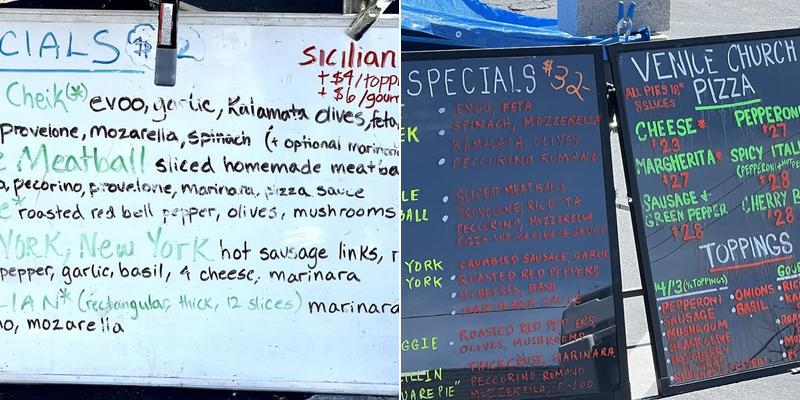 CIALS
Sicilian
+ $4/topp
+ $6/gour
Cheik(*) evoo, garlic, Kalamata olives, feta,
provelone, mozarella, spinach (+ optional marinar
Meatball sliced homemade meatba
pecorino, provelone, marinara, pizza sauce
roasted red bell pepper, olives, mushrooms
YORK, New YORK hot sausage links, r
pepper, garlic, basil, 4 cheese, marinara
LIAN* (rectangular, thick, 12 slices) marinara
mozarella
SPECIALS $32-
EVOO, FETA
SPINACH, MOZZERELLA
EK
KAMALATA, OLIVES
PECCORINO ROMANO
LE
SLICED MEATBALLS
BALL
PROVOLONE, RICOTTA
PECCORINO, MOZZERELLA
PIZZA AND MARINARA SAUCE
YORK
CRUMBLED SAUSAGE, GARLIC
YORK
ROASTED RED PEPPERS
4 CHEESES, BASIL
MARINARA SAUCE
GGIE
ROASTED RED PEPPERS
OLIVES, MUSHROOMS
THICK CRUST, MARINARA
ILLIN
PECCORINO ROMONO
UARE PIE"
MOZZERELLA, EVOO
VENICE CHURCH
PIZZA
ALL PIES 18"
8 SLICES
CHEESE*
$23
PEPPERONI
$27
MARGHERITA*
$27
SPICY ITALI
(PEPPERONI+HOT
$28
SAUSAGE +
GREEN PEPPER
$28
CHERRY B
$28
TOPPINGS
$4/$3 (½ TOPPINGS)
GOU
PEPPERONI
SAUSAGE
MUSHROOM
BLACK OLIVE
ONIONS
BASIL
RIC
KA
ROA